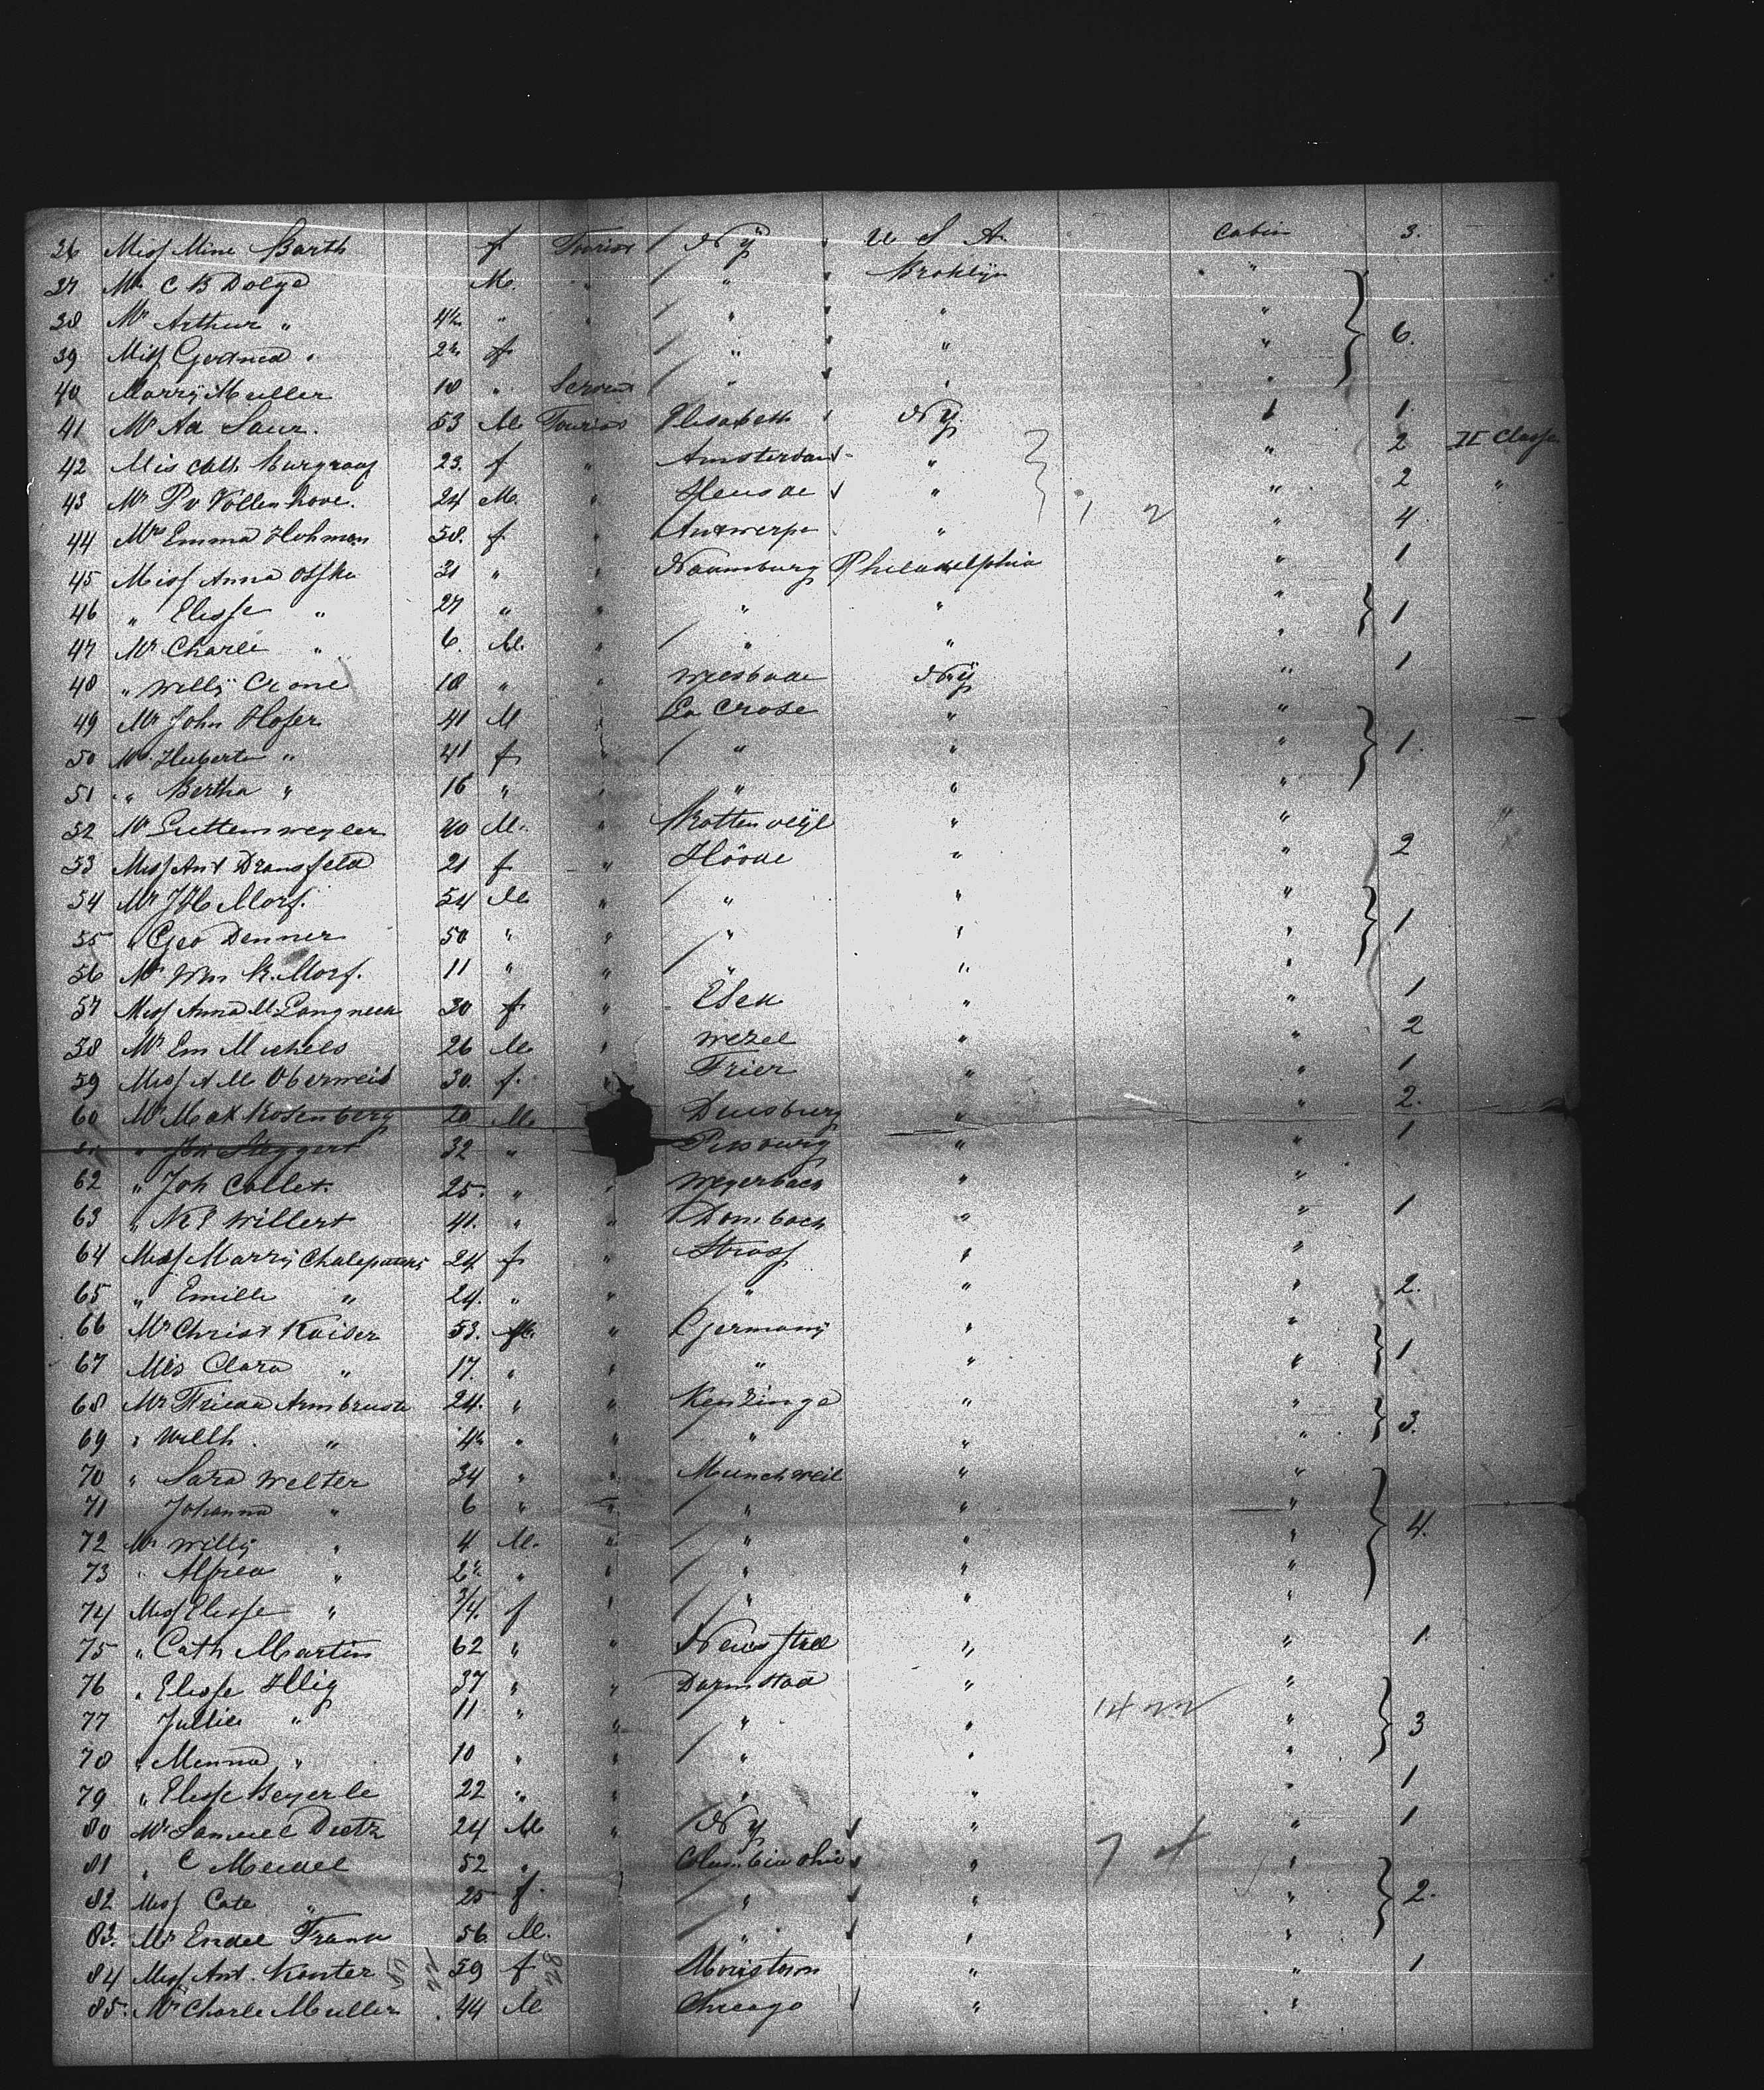 26 Miss Mine Barth f Tourist / N y " U S A. Cabin 3.
27 Mr C B Dolge M. " / " " Broklyn "
38 Mr Arthur " 4½ " " / " " " "
39 Miss " 2½ f / " " " 6.
40 Marry Muller 18 " Servent / " " "
41 Mr Ad Saur. 53 M Tourist Elisabeth N y. 1
42 Mis Cath Burgraaf 23. f " Amsterdam " " 2 II Classe
43 Mr P v Vollenhove. 24 M. " " " 2 "
44 Mrs Emma Hohman 58. f " Antwerpe " " 4.
45 Miss Anna 31 " " Naumburg Philadelphia " 1
46 " Elisse " 27 " " " " " 1
47 Mr Charli " 6. M. " / " " "
48 " Willy Crone 18 " " Wiesbade N y " 1
49 Mr John Hofer 41 M " La Crose " "
50 Mrs Huberta " 41 f " / " " " 1.
51 " Bertha " 16 " " " " "
52 Mr 40 M. " Rottenveyl " " "
53 Miss Ant Dransfeld 21 f " " " 2
54 Mr J H Morf. 54 M " / " " "
55 " Geo Denner 50 " " / " " " 1
56 Mr Wm R. Morf. 11 " " / " " "
57 Miss Anna M Langneck 30 f " Esen " " 1
58 Mr Em Michels 26 M. " Wezel " " 2
59 Miss A M Oberweis 30. f. " Trier " " 1
60 Mr Max Rosenberg 20 M. Duisburg " " 2.
" Joh Steggert 32 " " " 1
62 " Joh Collet. 25. " " Weyerbach " "
63 " Willert 41. " " Dombach " " 1
64 Miss Marry 24 f " Strass " "
65 " Emille " 24. " " " " " 2.
66 Mr Christ Kaiser 53. M. " Germany " "
67 Mis Clara " 17. " " " " " 1
68 Mr Frieda Armbruste 24. " " Kenzinge " "
69 " Willh. " 4½ " " / " " " 3.
70 " Sara Welter 34 " " Munchweil " "
71 Johanna " 6 " " / " " "
72 Mr Willy " 4 M. " / " " " 4.
73 " Alfred " 2½ " " / " " "
74 Miss Elisse " 3/4. f " / " " "
75 " Cath Martin 62 " " " " 1
76 " Elisse Illig 37 " " Darmstad " "
77 Jullie " 11 " " / " " 14 22 " 3
78 " Minna " 10 " " / " " "
79 " Elisse Beyerle 22 " " " " " 1
80 Mr Samuel Dietz 24 M " N y " " 1
81 " C Meidel 52 " Columbia Ohio " 7 "
82 Miss Cate " 25 f. / " " " 2.
83. Mr Endel Frank 56. M. / " " "
84 Miss Ant. Kanter 59 f Moristown " " 1
85. Mr Charle Muller 44 M Chicago " "